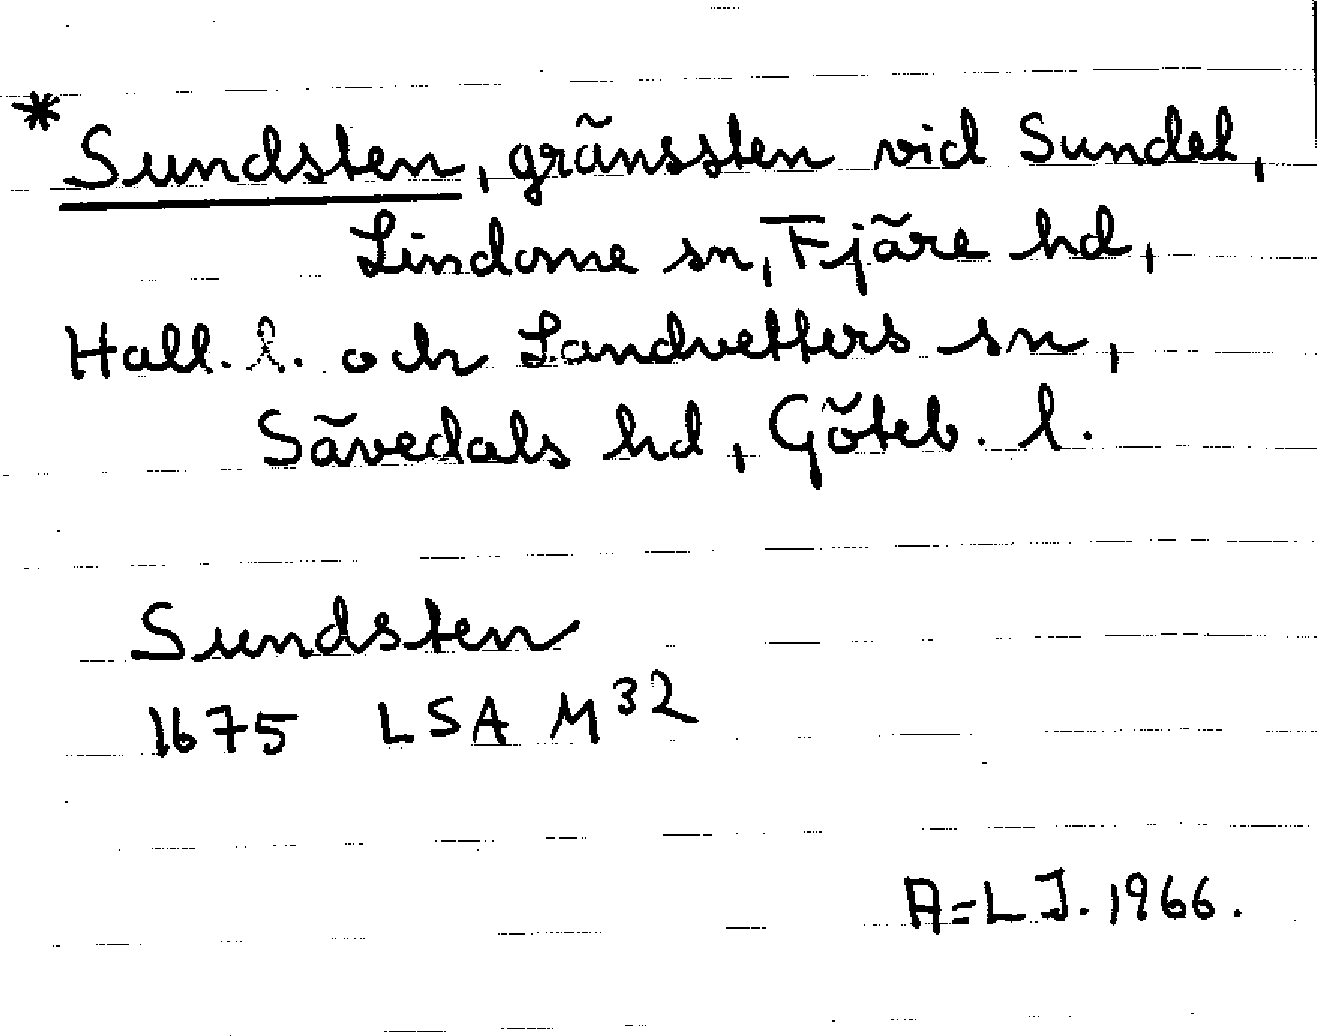 * Sundsten, gränssten vid Sundet,
Lindome sn, Fjäre hd,
Hall. l. och Landvetters sn,
Sävedals hd, Göteb. l.
Sundsten
1675 LSA M32
A=L J. 1966.